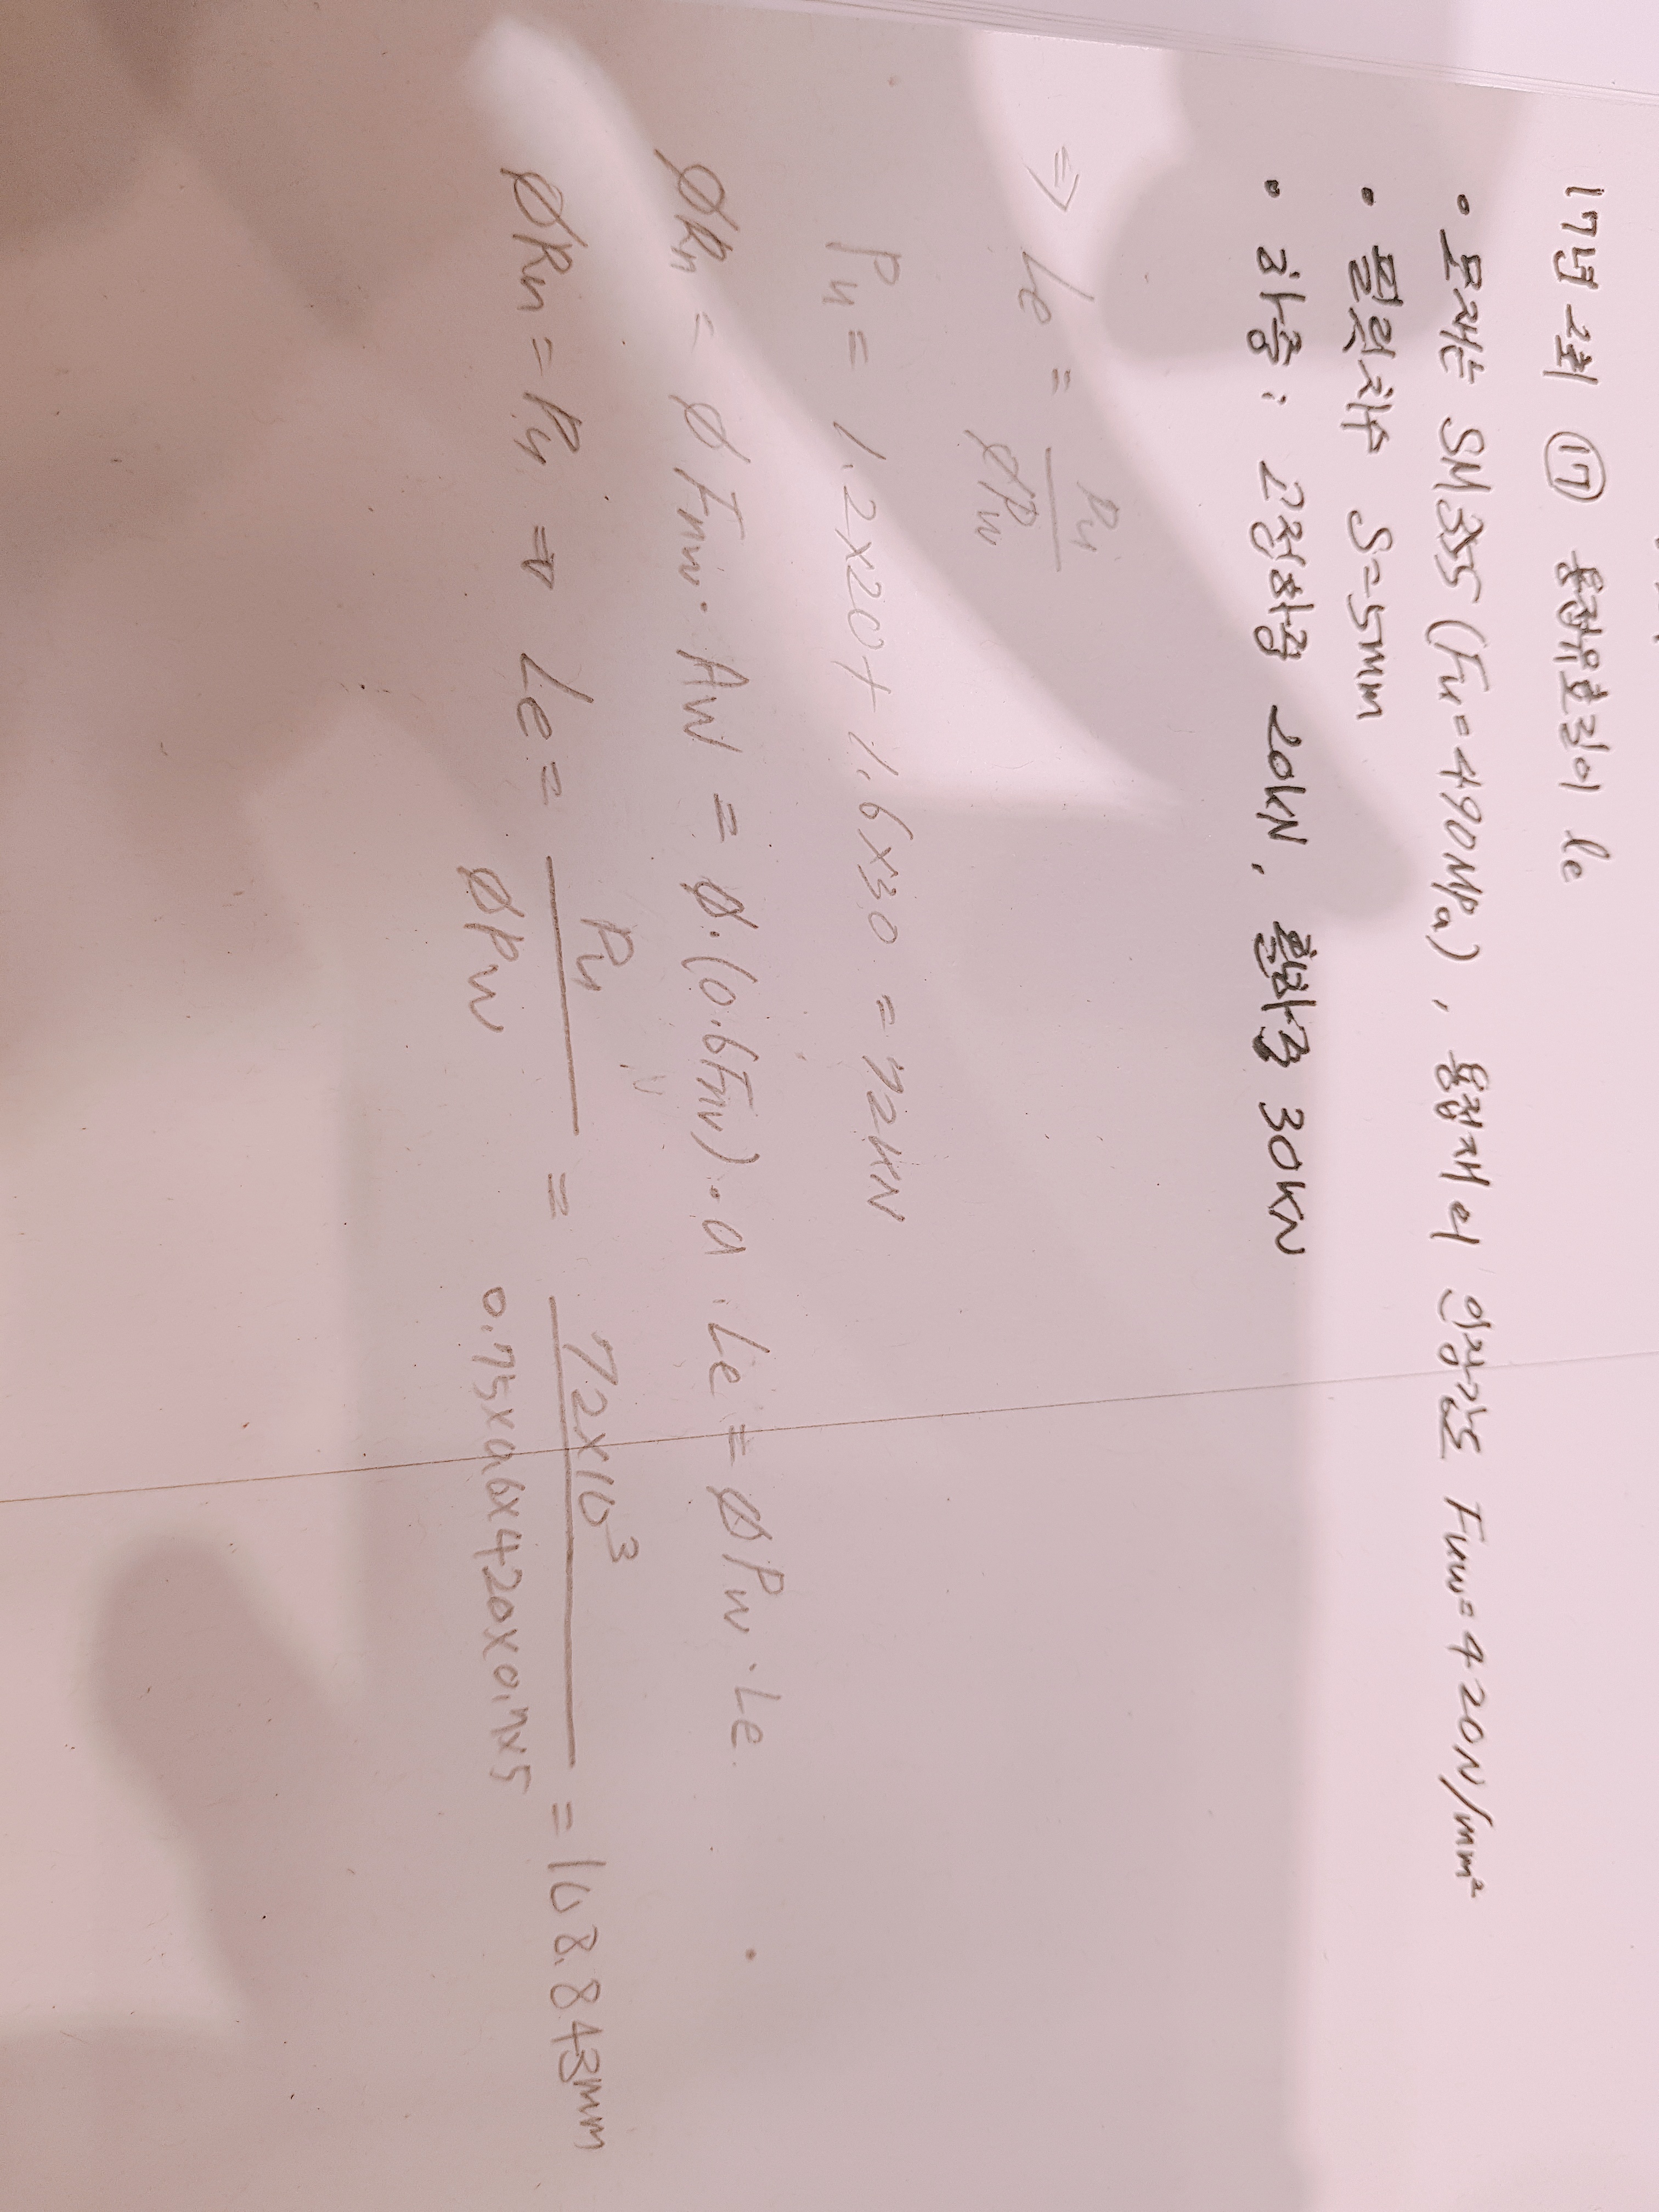 17년 2회 ⑰ 용접유효길이 le
• 모재는 SM355 (Fu=490MPa), 용접재의 인장강도 Fuw=420N/mm²
• 필릿치수 S=5mm
• 하중: 고정하중 20kN, 활하중 30kN
⇒ Le = Pu / ØPw
Pu = 1.2x20+1.6x30 = 72kN
ØRn = Ø Fnw · Aw = Ø·(0.6Fnw)·a·Le = ØPw·Le.
ØRn = Pu ⇒ Le = Pu / ØPw = 72x10³ / 0.75x0.6x420x0.7x5 = 108.843mm